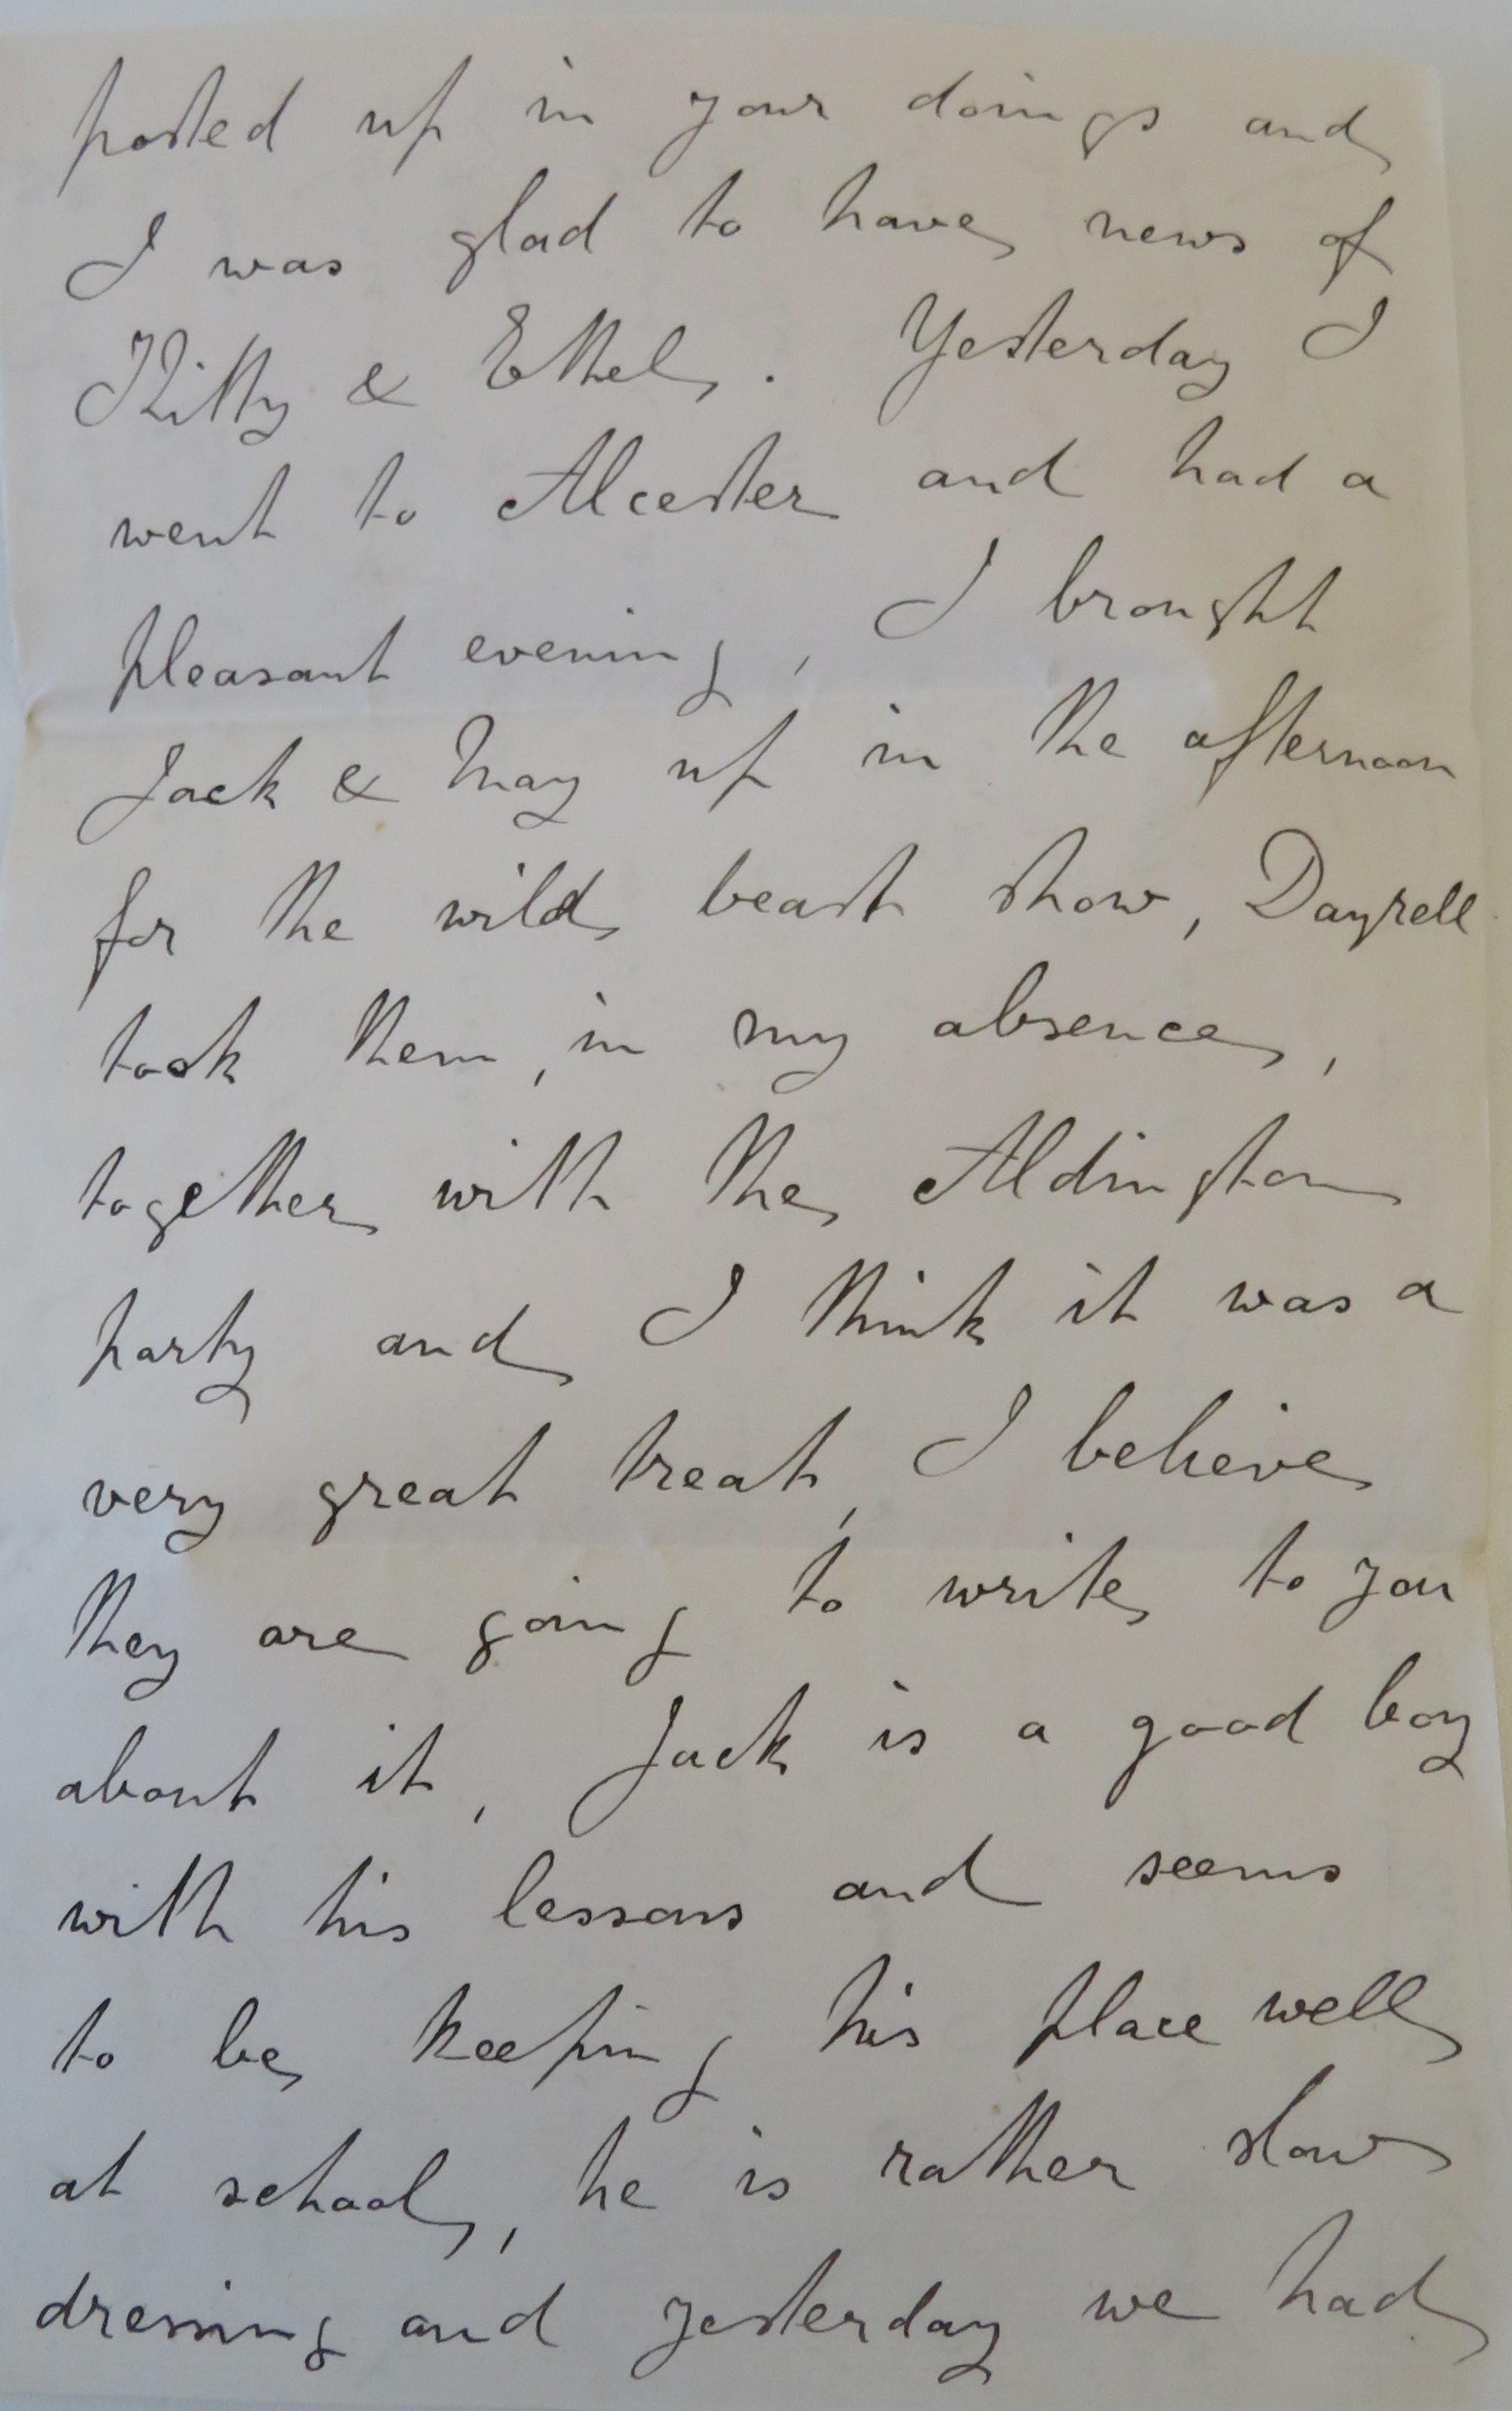 posted up in your doings and
I was glad to have news of
Kitty & Ethel. Yesterday I
went to Alcester and had a
pleasant evening, I brought
Jack & May up in the afternoon
for the wild beast show, Dayrell
took them, in my absence,
together with the Aldington
party and I think it was a
very great treat, I believe
they are going to write to you
about it, Jack is a good boy
with his lessons and seems
to be keeping his place well
at school, he is rather slow
dressing and yesterday we had